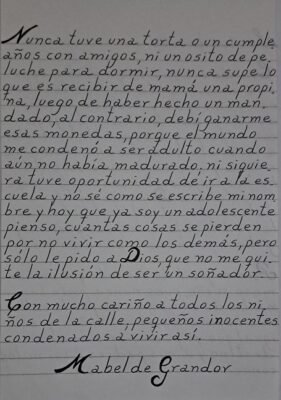 Nunca tuve una torta o un cumple
años con amigos, ni un osito de pe
luche para dormir, nunca supe lo
que es recibir de mamá una propi
na, luego de haber hecho un man
dado, al contrario, debí ganarme
esas monedas, porque el mundo
me condenó a ser adulto cuando
aún no había madurado. ni siquie
ra tuve oportunidad de ir a la es
cuela y no sé como se escribe mi nom
bre y hoy que ya soy un adolescente
pienso, cuántas cosas se pierden
por no vivir como los demás, pero
sólo le pido a Dios, que no me qui
te la ilusión de ser un soñador.
Con mucho cariño a todos los ni
ños de la calle, pequeños inocentes
condenados a vivir así.
Mabel de Grandov